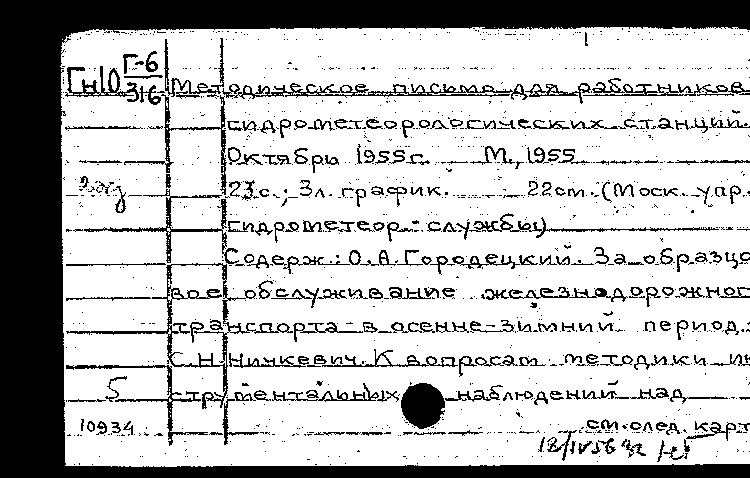 Гн10 Г-6
316
Методическое письмо для работников
гидрометеорологических станций.
Октябрь 1955г. М., 1955
23с.; 3л. график. 22см. (Моск. упр.
гидрометеор. службы)
Содерж.: О.А. Городецкий. За образцо
вое обслуживание железнодорожног
транспорта в осенне-зимний период.
С.Н. Ничкевич. К вопросам методики ин
струментальных наблюдений над
5
10934 см. след. карт
18/IV 56